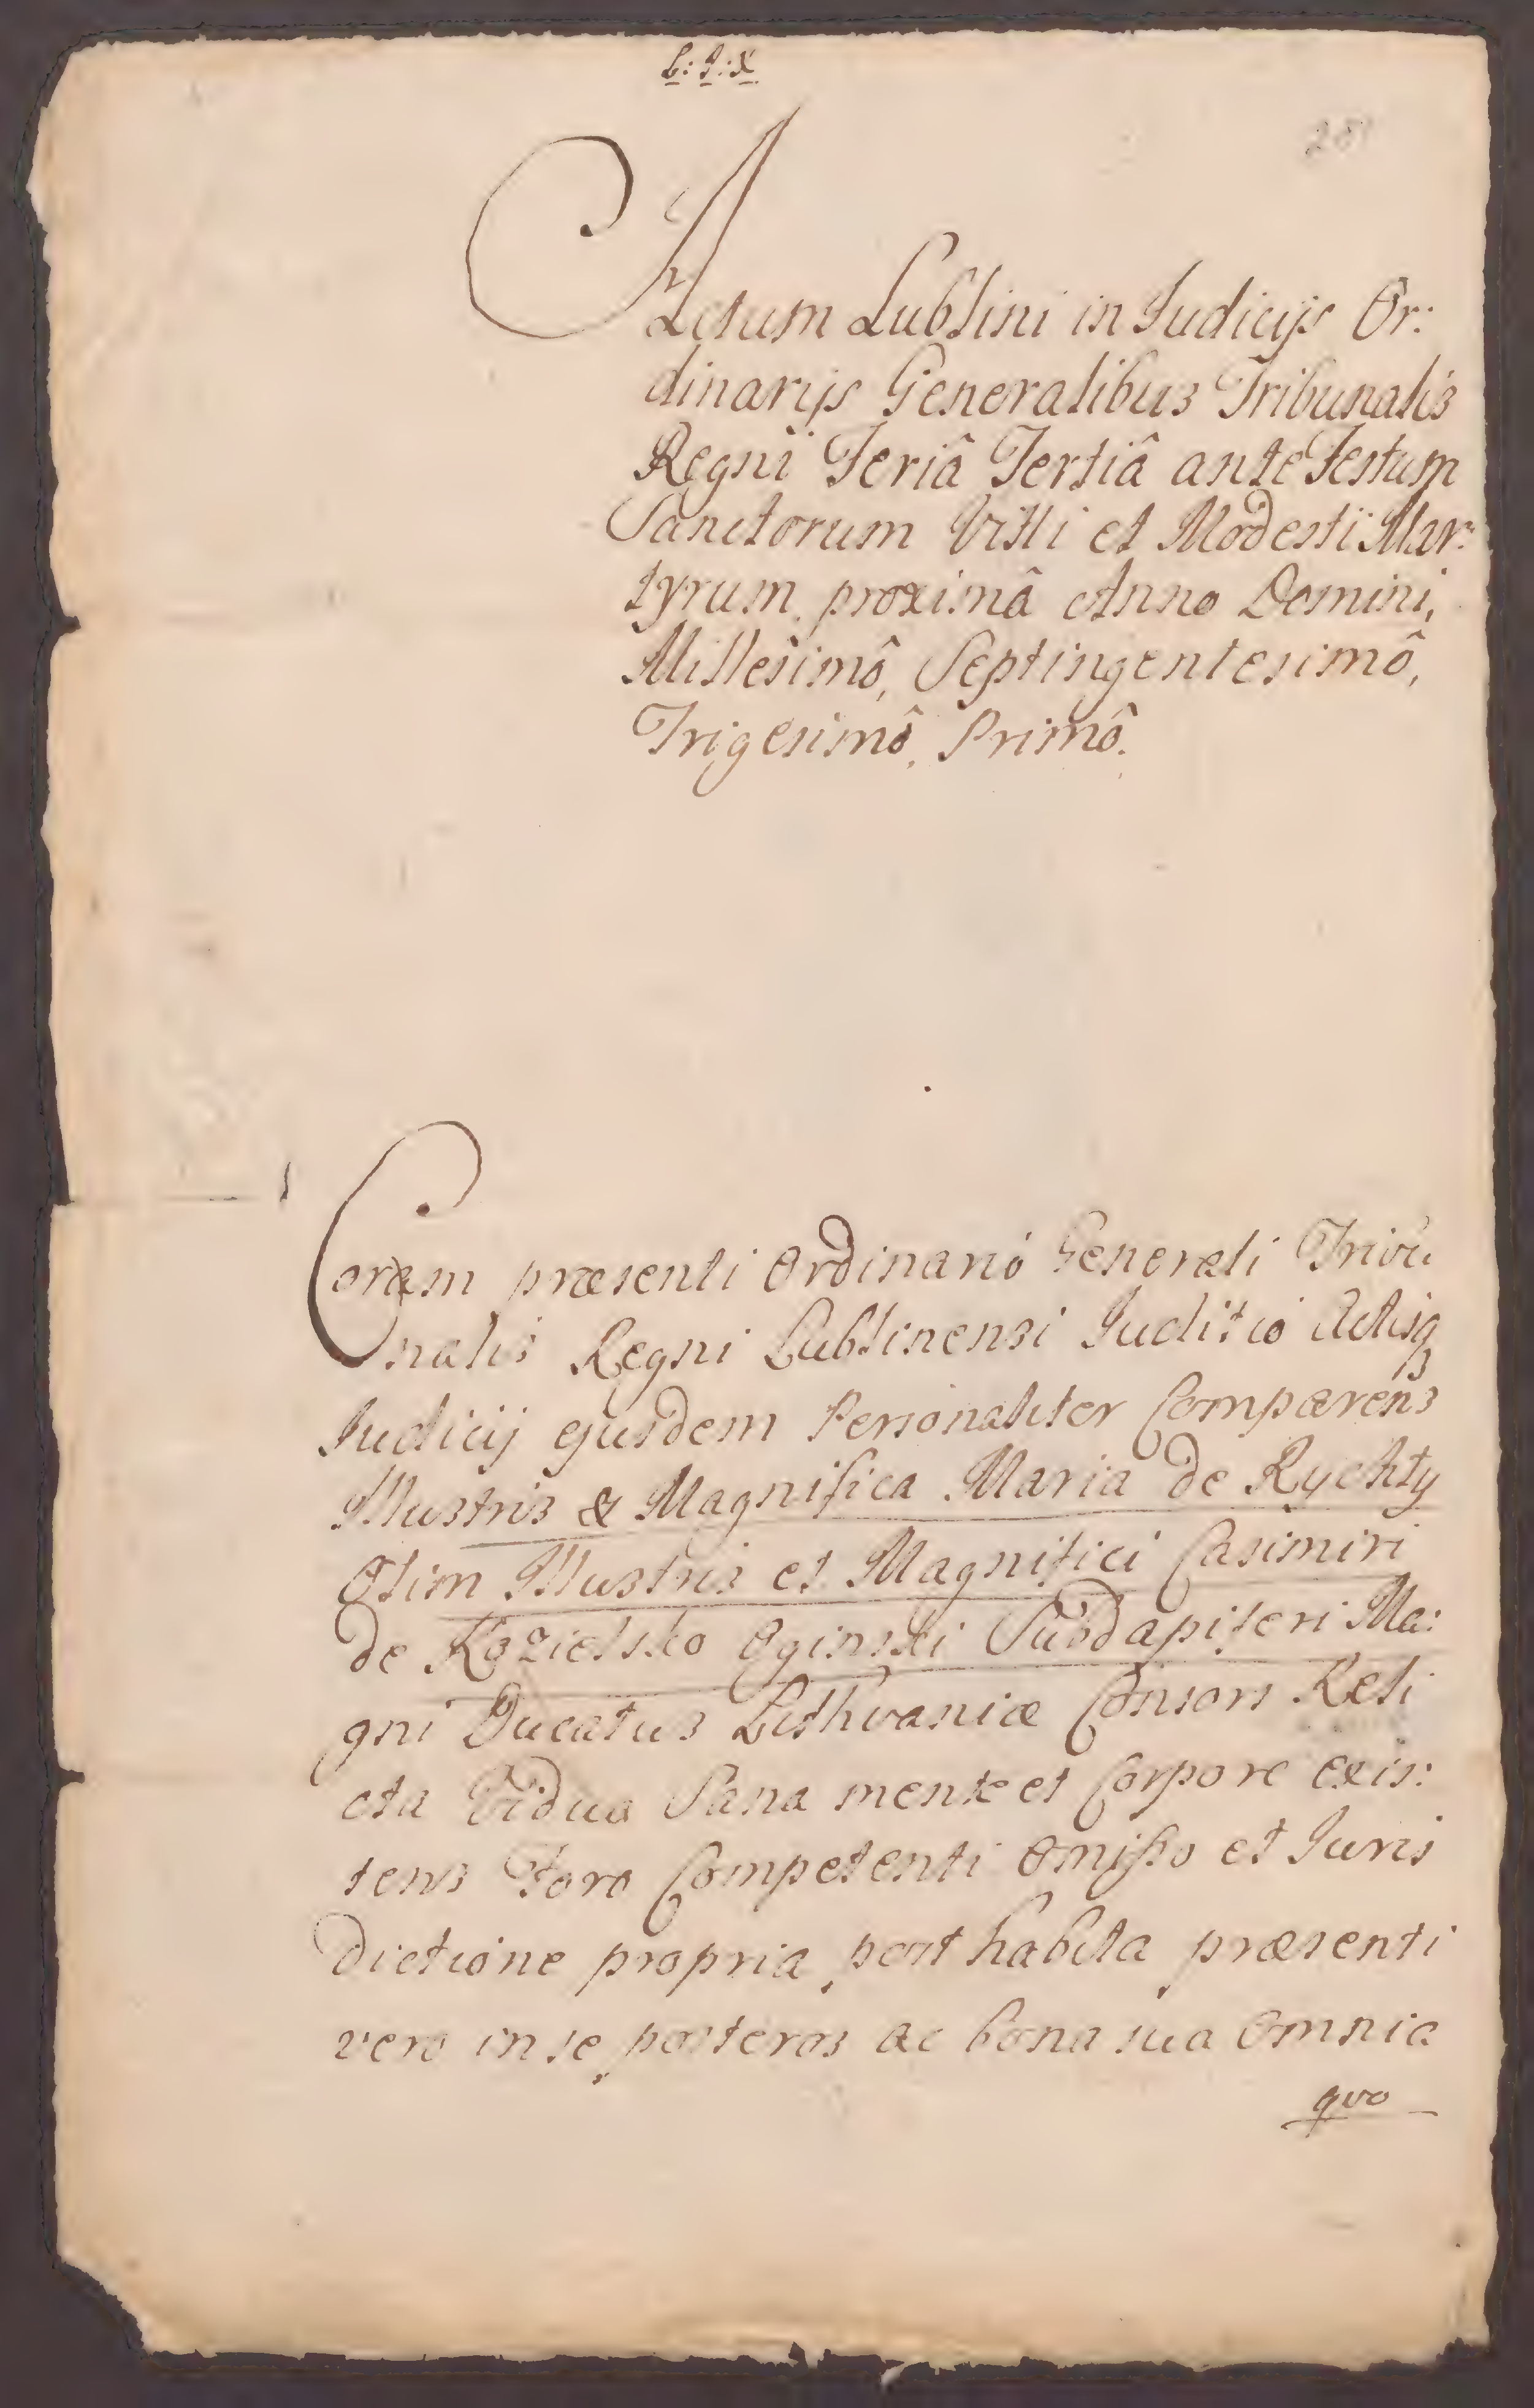 L: J: X
Actum Lublini in Judicijs Or:
dinarijs Generalibus Tribunalis
Regni Feriâ Tertiâ ante Festum
Sanctorum Vitti et Modesti Mar:
tyrum proximâ Anno Domini,
Millesimô, Septingentesimô,
Trigesimô, Primô.
Coram præsenti Ordinario Generali Tribu
nalis Regni Lublinensi Juditio Actisq
Judicij ejusdem Personaliter Comparens
Illustris & Magnifica Maria de Rychty
Olim Illustris et Magnifici Casimiri
de Kozielsko Oginski Subdapiferi Ma:
gni Ducatus Lithvaniæ Consors Reli
cta Vidua Sana mente et Corpore Exis:
tens Foro Competenti Omisso et Juris
dictione propria, post habita, præsenti
vero in se, posteros ac bona sua Omnia
qvo